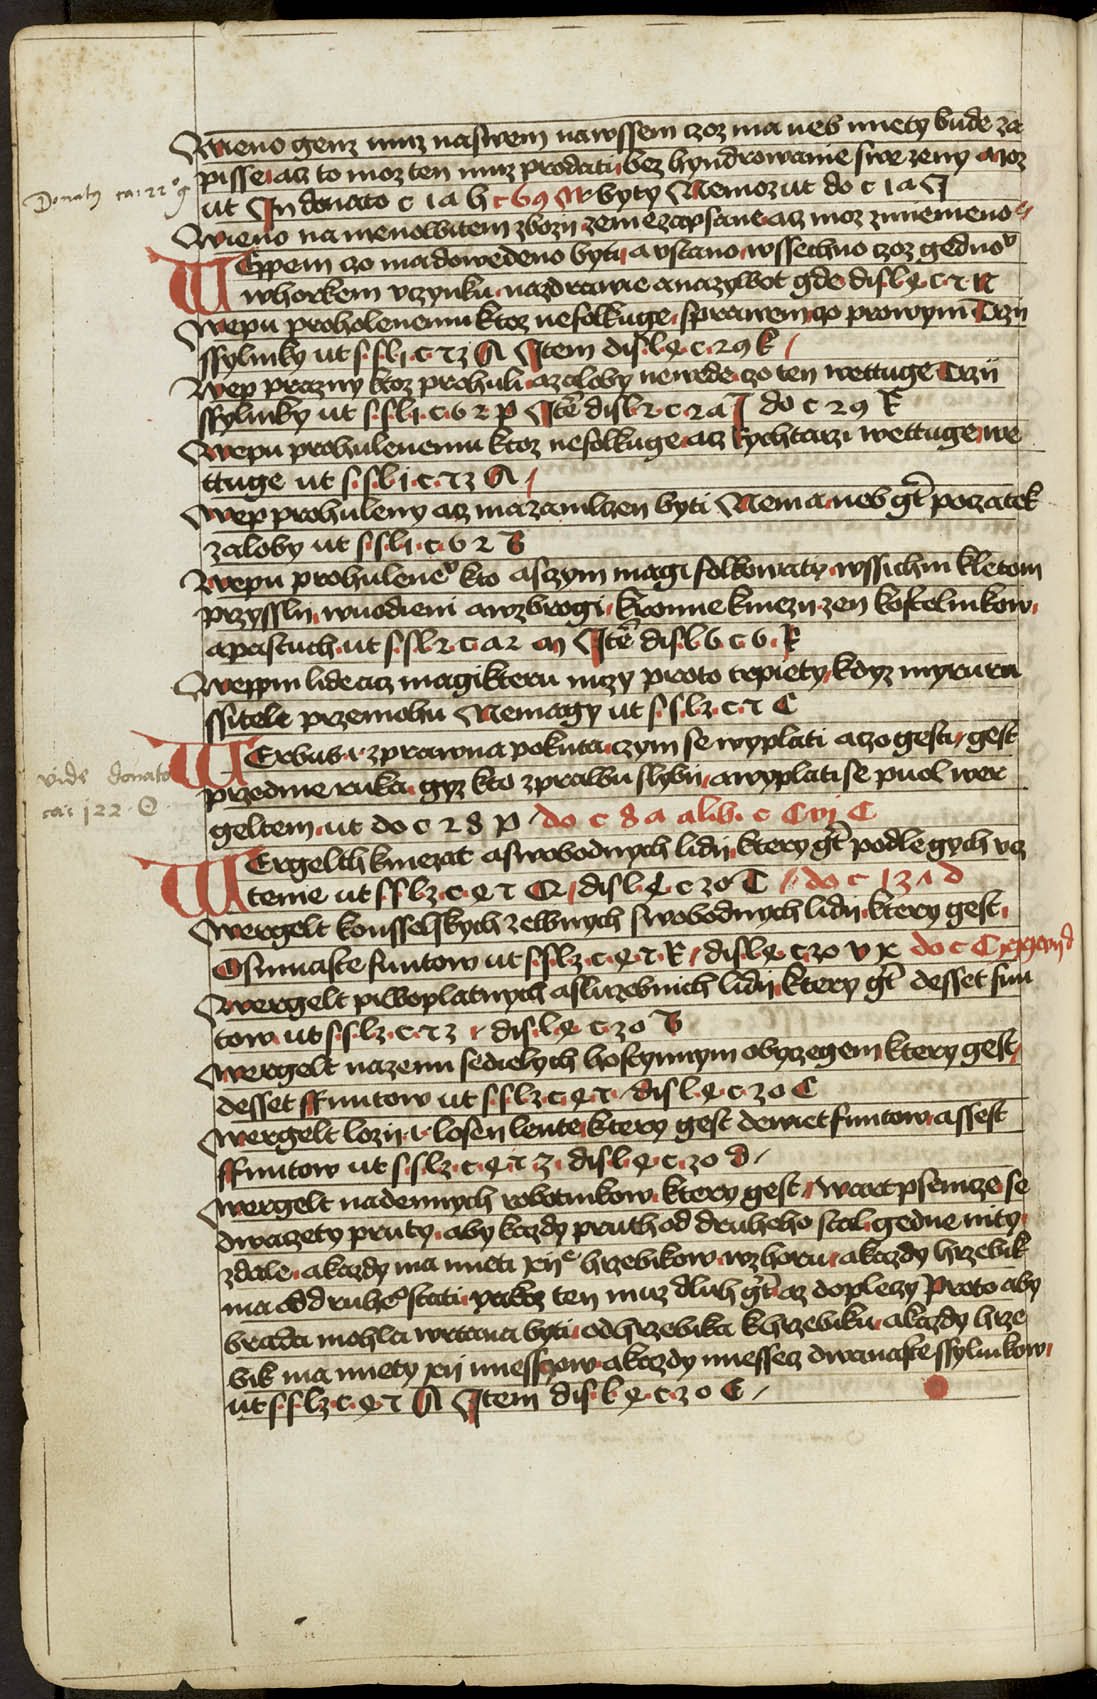 Wieno genz muz naswem nawssem czoz ma neb miety bude za
pisse acz to moz ten muz prodati bez hyndrowanie swe zeny moz
Donatj ca: 22 g
ut In donato c 1a h c 69 byty Nemoz ut do c 1a J
Wieno na menowitem zbozii zeme zapsane acz moz zmiemeno
WEppem czo ma dowedeno byti a ustano wssechno czoz gedno
w horkem uczynku nazdrawie anazywot gde dis l 4 c 7 R
Wepu proholenemu ktoz nefolkuge sprawem czo prowynil Trzii
ssylinky ut s s l j c 7 z A Item dis l 4 c 29 k
Wep prazny ktoz prohuli azaloby newede czo ten wettuge Trzii
ssylinky ut s s l j c 6 2 p Ite dis l 2 c 2a J do c 29 R
Wepu prohulenemu ktoz nefolkuge acz Rychtarzi wettuge we
ttuge ut s s l j c 7 z A
Wep prohuleny acz ma zamlczen byti Nema neb gt poczatek
zaloby ut s s l j c 6 2 B
Wepu prohulene kto aczym magi folkowaty wssichni kletom
przyssli wuodieni awzbrogi kromie kniezii zen kostelnikow
apastuch ut s s l 2 c a2 m Ite dis l 6 c 6 R
Weppni lide acz magi kteru nuzy proto trpiety kdyz myru ru
ssitele przemohu Nemagy ut s s l z c 7 C
WErbus i zprawna pokuta czym se wyplati aczo gest gest
vide donato
ca: 122 O
przedme ruka gyz kto zprawu slybii awyplati se puol wer
geltem ut do c 28 p do c 8a alib c Cvi C
WErgelth kniezat aswobodnych lidii ktery gt podle gych ucz
teme ut s s l z c 4 7 Q dis l 4 c 20 T do c 131 d
Wergelt konsselskych zewnych swobodnych lidii ktery gest
Osmnaste funtow ut s s l z c 4 7 R dis l 4 c 20 v x do c Cxxxvii d
Wergelt piwoplatnych asluzebnich lidii ktery gt desset fun
tow ut s s l z c 7 z dis l 4 c 20 B
Wergelt nazemi sedielych hostynnym obyczegem ktery gest
desset ffuntow ut s s l z c 4 7 dis l 4 c 20 C
Wergelt lozii i losen leute ktery gest dewiet funtow assest
ffuntow ut s s l z c 4 7 z dis l 4 c 20 d
Wergelt nadennych robotnikow ktery gest wort psenicze se
dwaczety pruty aby kazdy pruth od druheho stal gedne nity
zdale akazdy ma mieti xii hrzebikow wzhoru akazdy hrzebik
ma od druhe stati yakoz ten muz dluh gt az do pleczy Proto aby
brada mohla wrtana byti od hrzebika khrzebiku akazdy hrze
bik ma miety xii miesszow akazdy miessecz dwanaste ssylinkow
ut s s l z c 4 7 A Item dis l 4 c 20 E